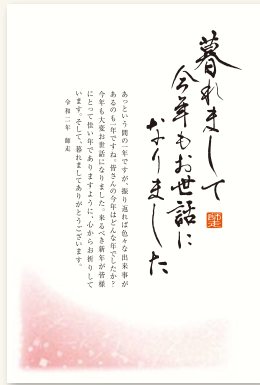 暮れまして
今年もお世話に
なりました
師走
あっという間の一年ですが、振り返れば色々な出来事が
あるのも一年ですね。皆さんの今年はどんな年でしたか?
今年も大変お世話になりました。来るべき新年が皆様
にとって佳い年でありますように、心からお祈りして
います。そして、暮れましてありがとうございます。
令和二年 師走